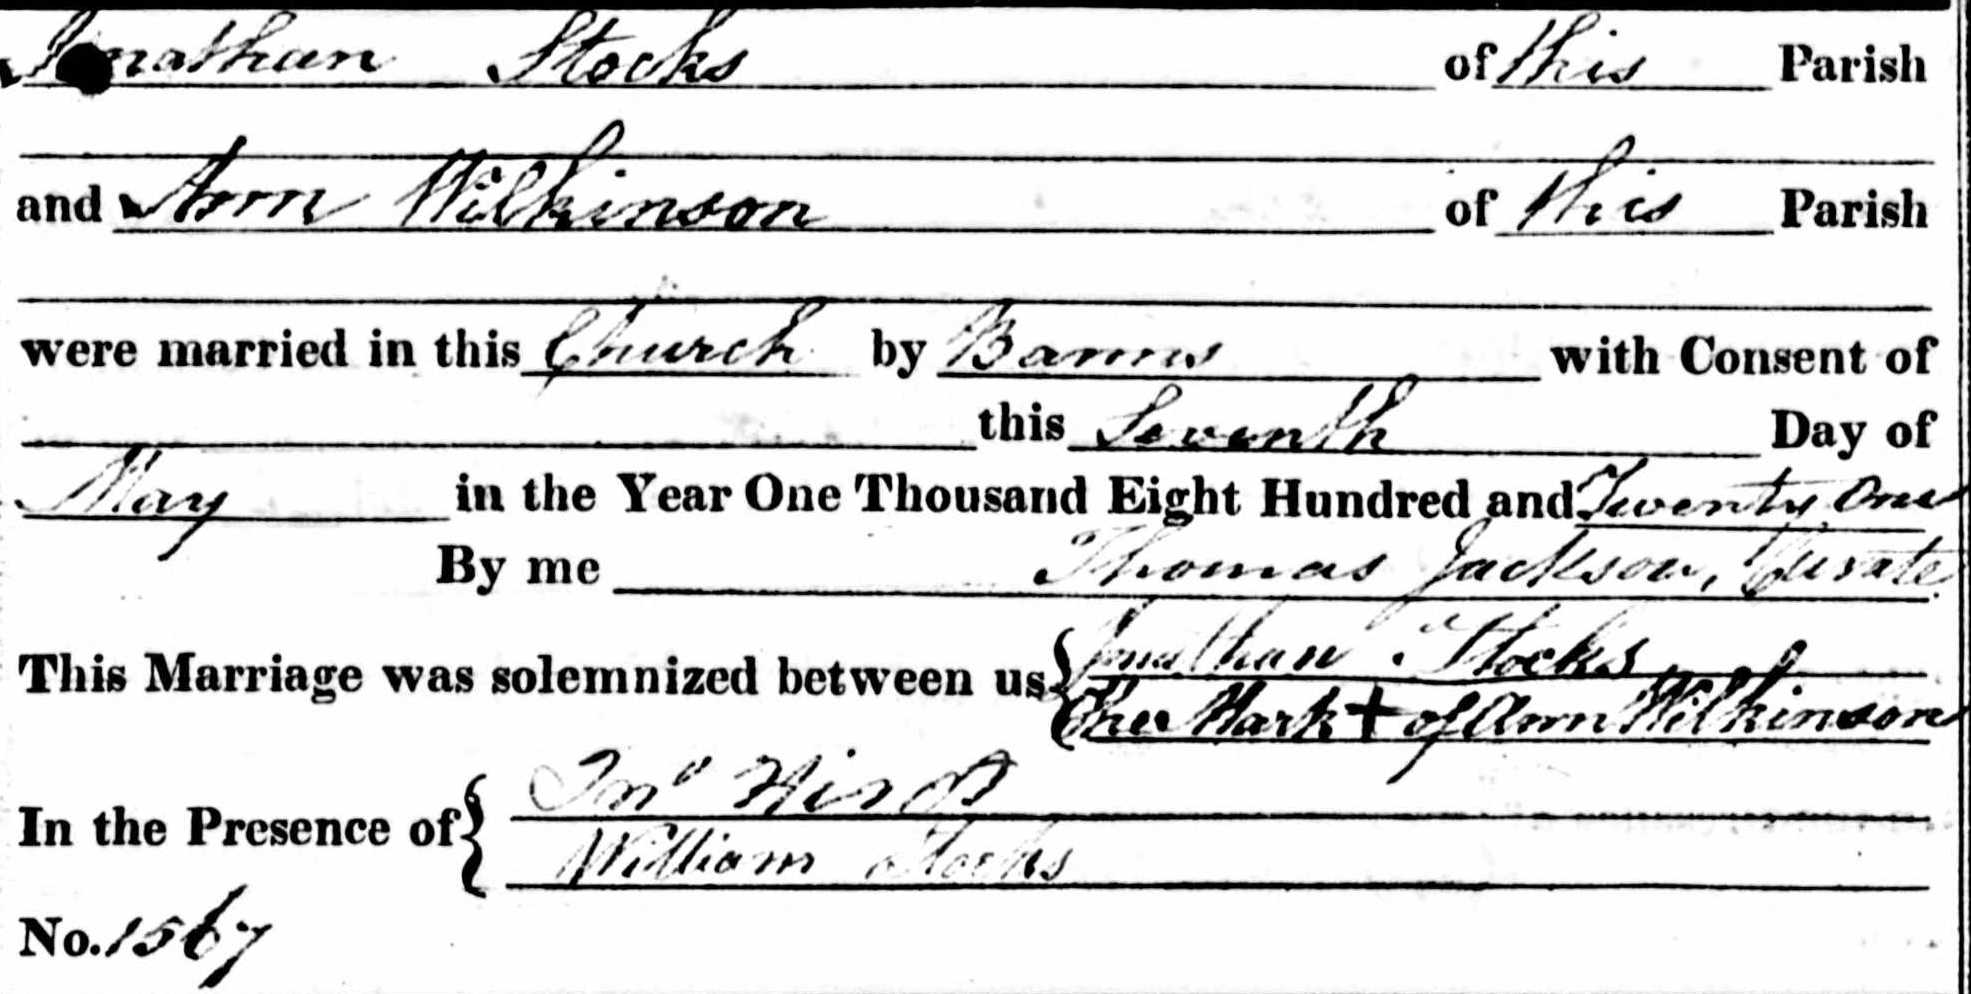 Jonathan Stocks of this Parish
and Ann Wilkinson of this Parish
were married in this Church by Banns with Consent of
this Seventh Day of
May in the Year One Thousand Eight Hundred and Twenty One
By me Thomas Jackson, Curate.
This Marriage was solemnized between us { Jonathan Stocks
The Mark + of Ann Wilkinson
In the Presence of { Jnº Hirst
William Stocks
No. 1567